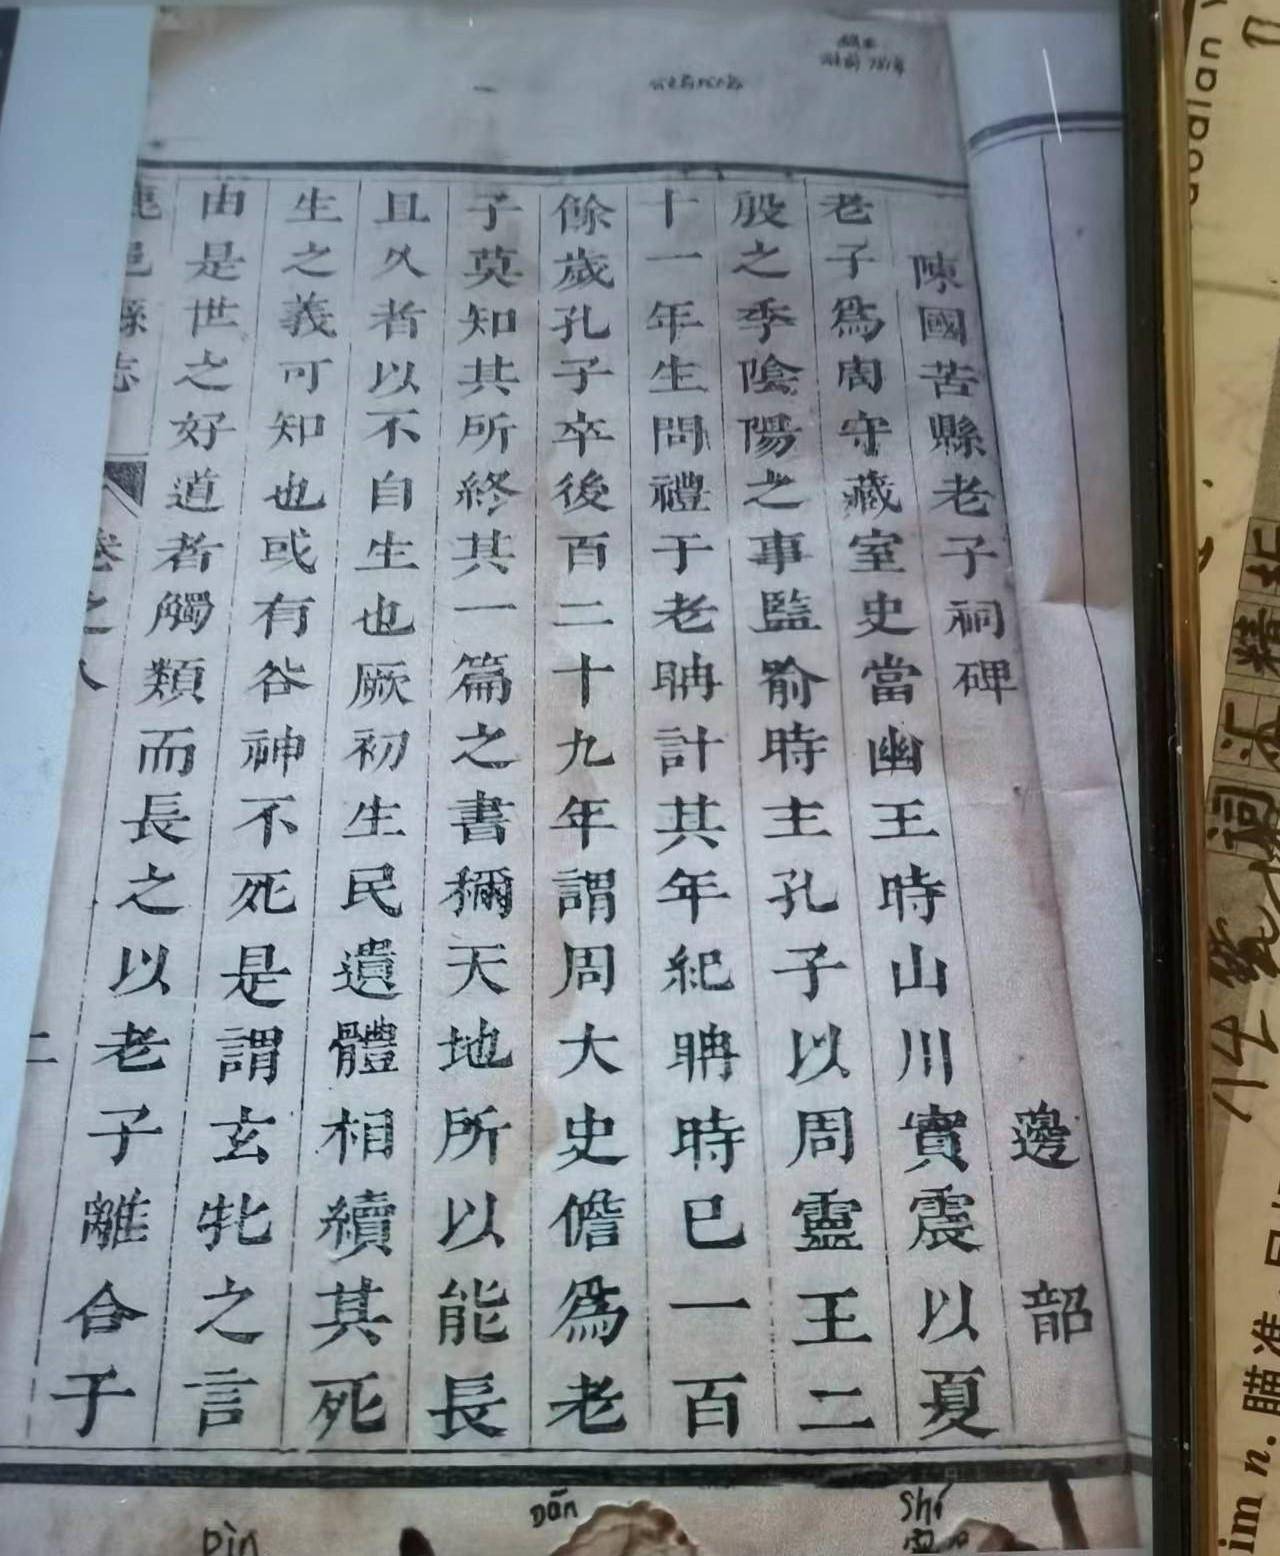 陳國苦縣老子祠碑
邊韶
老子爲周守藏室史當幽王時山川實震以夏
殷之季陰陽之事監喻時主孔子以周靈王二
十一年生問禮于老聃計其年紀聃時已一百
餘歲孔子卒後百二十九年謂周大史儋爲老
子莫知其所終其一篇之書稱天地所以能長
且久者以不自生也厥初生民遺體相續其死
生之義可知也或有谷神不死是謂玄牝之言
由是世之好道者觸類而長之以老子離合于
鹿邑縣志
卷之八
二
Dān
pìn
Shí
im n. 瞄准